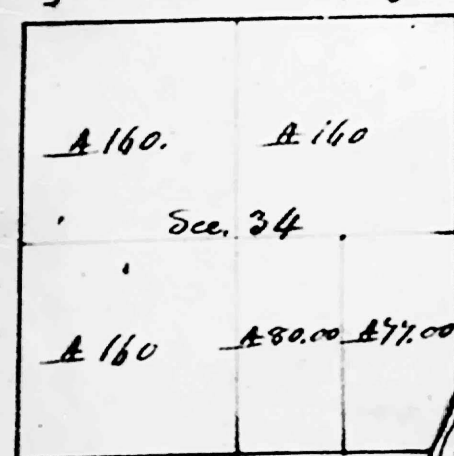 A 160. A 160
Sec. 34
A 160 A 80.00 A 77.00